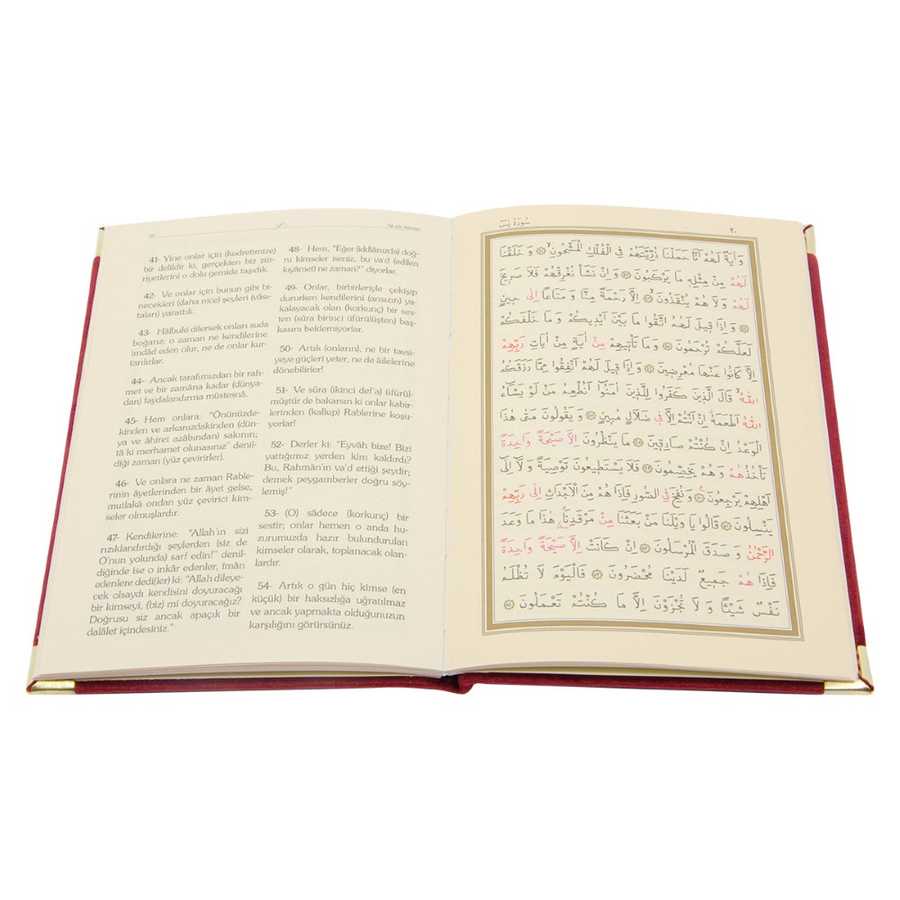 41- Yine onlar için (kudretimize)
bir delildir ki, gerçekten biz zür-
riyetlerini o dolu gemide taşıdık.
42- Ve onlar için bunun gibi bi-
necekleri (daha nice) şeyleri (vâsı-
taları) yarattık.
43- Hâlbuki dilersek onları suda
boğarız; o zaman ne kendilerine
imdâd eden olur, ne de onlar kur-
tarılırlar.
44- Ancak tarafımızdan bir rah-
met ve bir zamâna kadar (dünya-
dan) faydalandırma müstesnâ.
45- Hem onlara: "Önünüzde-
kinden ve arkanızdakinden (dün-
ya ve âhiret azâbından) sakının;
tâ ki merhamet olunasınız" denil-
diği zaman (yüz çevirirler).
46- Ve onlara ne zaman Rable-
rinin âyetlerinden bir âyet gelse,
mutlakâ ondan yüz çevirici kim-
seler olmuşlardır.
47- Kendilerine: "Allah'ın sizi
rızıklandırdığı şeylerden (siz de
O'nun yolunda) sarf edin!" denil-
diğinde ise o inkâr edenler, îmân
edenlere dedi(ler) ki: "Allah dileye-
cek olsaydı kendisini doyuracağı
bir kimseyi, (biz) mi doyuracağız?
Doğrusu siz ancak apaçık bir
dalâlet içindesiniz."
48- Hem, "Eğer (iddiânızda) doğ-
ru kimseler iseniz, bu va'd (edilen
kıyâmet) ne zaman?" diyorlar.
49- Onlar, birbirleriyle çekişip
dururken kendilerini (ansızın) ya-
kalayacak olan (korkunç) bir ses-
ten (sûra birinci üfürülüşten) baş-
kasını beklemiyorlar.
50- Artık (onların), ne bir tavsi-
yeye güçleri yeter, ne de âilelerine
dönebilirler!
51- Ve sûra (ikinci def'a) üfürül-
müştür de bakarsın ki onlar kabir-
lerinden (kalkıp) Rablerine koşu-
yorlar!
52- Derler ki: "Eyvâh bize! Bizi
yattığımız yerden kim kaldırdı?
Bu, Rahmân'ın va'd ettiği şeydir;
demek peygamberler doğru söy-
lemiş!"
53- (O) sâdece (korkunç) bir
sestir; onlar hemen o anda hu-
zurumuzda hazır bulundurulan
kimseler olarak, toplanacak olan-
lardır.
54- Artık o gün hiç kimse (en
küçük) bir haksızlığa uğratılmaz
ve ancak yapmakta olduğunuzun
karşılığını görürsünüz.
سُورَةُ يٰسٓ
٢٠
وَاٰيَةٌ لَهُمْ اَنَّا حَمَلْنَا ذُرِّيَّتَهُمْ فِي الْفُلْكِ الْمَشْحُونِ ۝ وَخَلَقْنَا
لَهُمْ مِنْ مِثْلِهِ مَا يَرْكَبُونَ ۝ وَاِنْ نَشَأْ نُغْرِقْهُمْ فَلَا صَرِيخَ
لَهُمْ وَلَا هُمْ يُنْقَذُونَ ۝ اِلَّا رَحْمَةً مِنَّا وَمَتَاعًا اِلٰى حِينٍ
۝ وَاِذَا قِيلَ لَهُمُ اتَّقُوا مَا بَيْنَ اَيْدِيكُمْ وَمَا خَلْفَكُمْ
لَعَلَّكُمْ تُرْحَمُونَ ۝ وَمَا تَأْتِيهِمْ مِنْ اٰيَةٍ مِنْ اٰيَاتِ رَبِّهِمْ
اِلَّا كَانُوا عَنْهَا مُعْرِضِينَ ۝ وَاِذَا قِيلَ لَهُمْ اَنْفِقُوا مِمَّا رَزَقَكُمُ
اللّٰهُ قَالَ الَّذِينَ كَفَرُوا لِلَّذِينَ اٰمَنُوا اَنُطْعِمُ مَنْ لَوْ يَشَاءُ
اللّٰهُ اَطْعَمَهُ اِنْ اَنْتُمْ اِلَّا فِي ضَلَالٍ مُبِينٍ ۝ وَيَقُولُونَ مَتٰى هٰذَا
الْوَعْدُ اِنْ كُنْتُمْ صَادِقِينَ ۝ مَا يَنْظُرُونَ اِلَّا صَيْحَةً وَاحِدَةً
تَأْخُذُهُمْ وَهُمْ يَخِصِّمُونَ ۝ فَلَا يَسْتَطِيعُونَ تَوْصِيَةً وَلَا اِلٰى
اَهْلِهِمْ يَرْجِعُونَ ۝ وَنُفِخَ فِي الصُّورِ فَاِذَا هُمْ مِنَ الْاَجْدَاثِ اِلٰى رَبِّهِمْ
يَنْسِلُونَ ۝ قَالُوا يَا وَيْلَنَا مَنْ بَعَثَنَا مِنْ مَرْقَدِنَا هٰذَا مَا وَعَدَ
الرَّحْمٰنُ وَصَدَقَ الْمُرْسَلُونَ ۝ اِنْ كَانَتْ اِلَّا صَيْحَةً وَاحِدَةً
فَاِذَا هُمْ جَمِيعٌ لَدَيْنَا مُحْضَرُونَ ۝ فَالْيَوْمَ لَا تُظْلَمُ
نَفْسٌ شَيْئًا وَلَا تُجْزَوْنَ اِلَّا مَا كُنْتُمْ تَعْمَلُونَ ۝